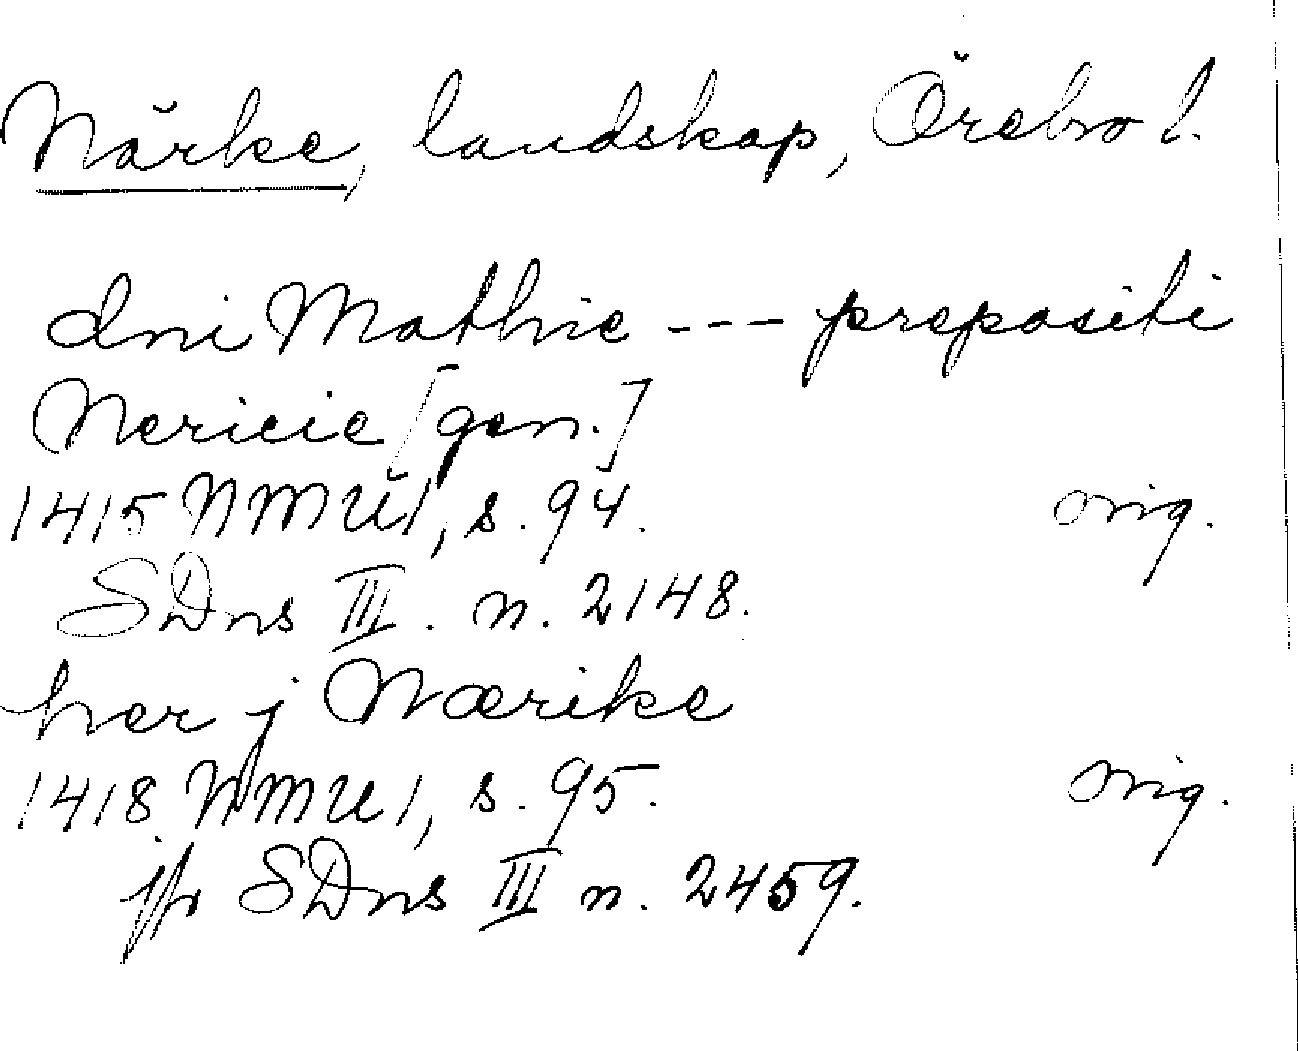 Närke, landskap, Örebro l.
dni Mathie --- prepositi
Nericie [gen.]
1415 NMU 1, s. 94. orig.
SDns III. n. 2148.
hær j Nærike
1418 NMU 1, s. 95. orig.
jfr SDns III n. 2459.